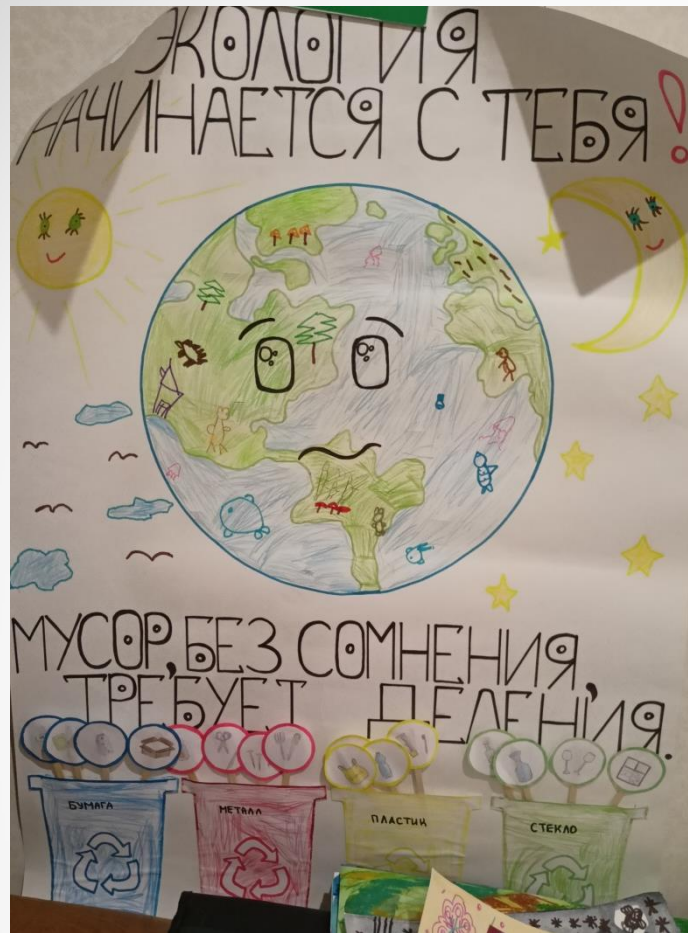 ЭКОЛОГИЯ
НАЧИНАЕТСЯ С ТЕБЯ!
МУСОР, БЕЗ СОМНЕНИЯ,
ТРЕБУЕТ ДЕЛЕНИЯ.
БУМАГА
МЕТАЛЛ
ПЛАСТИК
СТЕКЛО